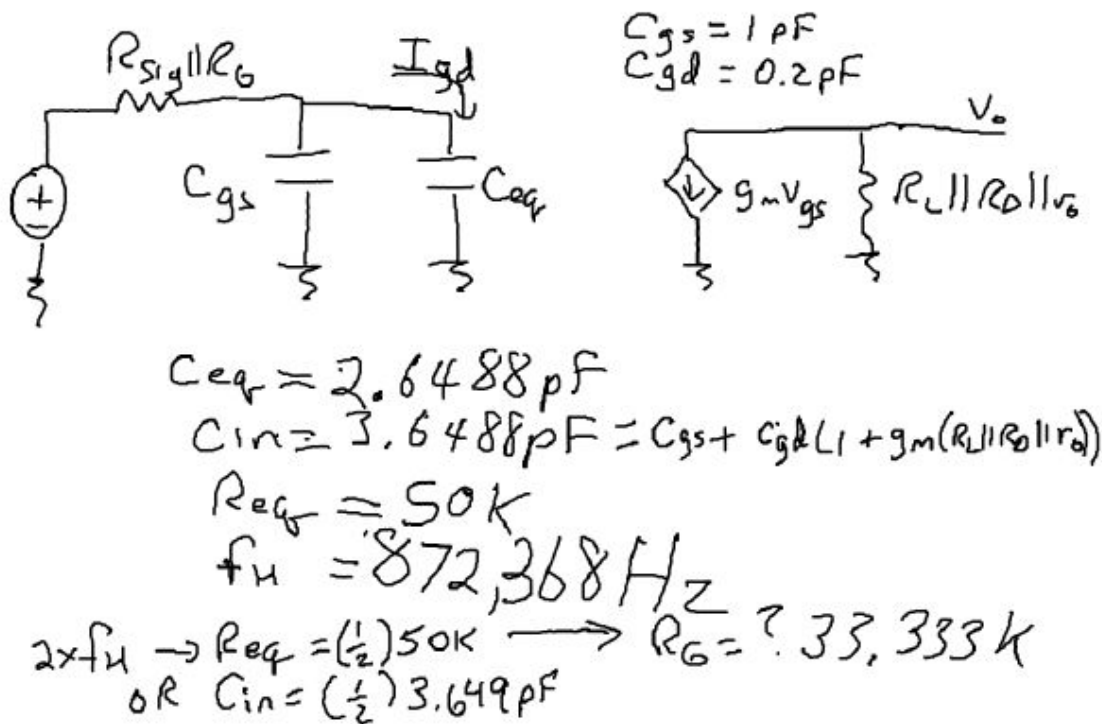 Rsig||RG
Igd
Cgs = 1 pF
Cgd = 0.2 pF
+
-
Cgs
Ceq
gmVgs
Vo
RL||RD||ro
Ceq = 2.6488 pF
Cin = 3.6488 pF = Cgs + Cgd(1 + gm(RL||RD||ro))
Req = 50K
fH = 872,368 Hz
2xfH → Req = (1/2)50K → RG = ? 33,333 K
OR Cin = (1/2) 3.649 pF